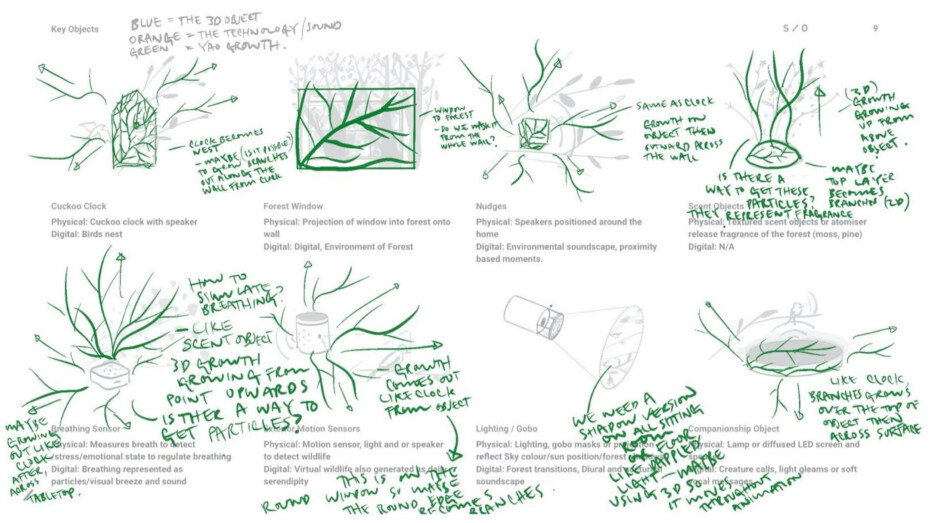 Key Objects
BLUE = THE 3D OBJECT
ORANGE = THE TECHNOLOGY/SOUND
GREEN = YAO GROWTH.
S / O
9
CLOCK BECOMES
NEST
- MAYBE (IS IT POSSIBLE)
TO GROW BRANCHES
OUT ALONG THE
WALL FROM CLOCK
Cuckoo Clock
Physical: Cuckoo clock with speaker
Digital: Birds nest
WINDOW
TO FOREST
- DO WE MASK IT
FROM THE
WHOLE WALL?
Forest Window
Physical: Projection of window into forest onto
wall
Digital: Digital, Environment of Forest
SAME AS CLOCK
GROWTH ON
OBJECT THEN
OUTWARD ACROSS
THE WALL
Nudges
Physical: Speakers positioned around the
home
Digital: Environmental soundscape, proximity
based moments.
(3D)
GROWTH
GROWING
UP FROM
ABOVE
OBJECT.
MAYBE
TOP LAYER
BECOMES
BRANCHES (2D)
IS THERE A
WAY TO GET THESE
PARTICLES?
THEY REPRESENT FRAGRANCE
Scent Objects
Physical: Textured scent objects or atomiser
release fragrance of the forest (moss, pine)
Digital: N/A
HOW TO
SIMULATE
BREATHING?
- LIKE
SCENT OBJECT
3D GROWTH
GROWING FROM
POINT UPWARDS
IS THER A WAY TO
GET PARTICLES?
MAYBE
GROWING
OUT LIKE
CLOCK
AFTER,
ACROSS
TABLETOP.
Breathing Sensor
Physical: Measures breath to detect
stress/emotional state to regulate breathing
Digital: Breathing represented as
particles/visual breeze and sound
- GROWTH
COMES OUT
LIKE CLOCK
FROM OBJECT
Motion Sensors
Physical: Motion sensor, light and or speaker
to detect wildlife
Digital: Virtual wildlife also generated
serendipity
THIS IS ON THE
ROUND WINDOW SO MAYBE
THE ROUND EDGE
BECOMES BRANCHES.
WE NEED A
SHADOW VERSION
ON ALL SITTING
ROOM
LIKE
DAPPLED
LIGHT - MAYBE
USING 3D SO
IT MOVES
THROUGHOUT
ANIMATION
Lighting / Gobo
Physical: Lighting, gobo masks or
reflect Sky colour/sun position/forest
Digital: Forest transitions, Diural and
soundscape
LIKE CLOCK,
BRANCHES GROWS
OVER THE TOP OF
OBJECT THEN
ACROSS SURFACE
Companionship Object
Physical: Lamp or diffused LED screen and
Digital: Creature calls, light gleams or soft